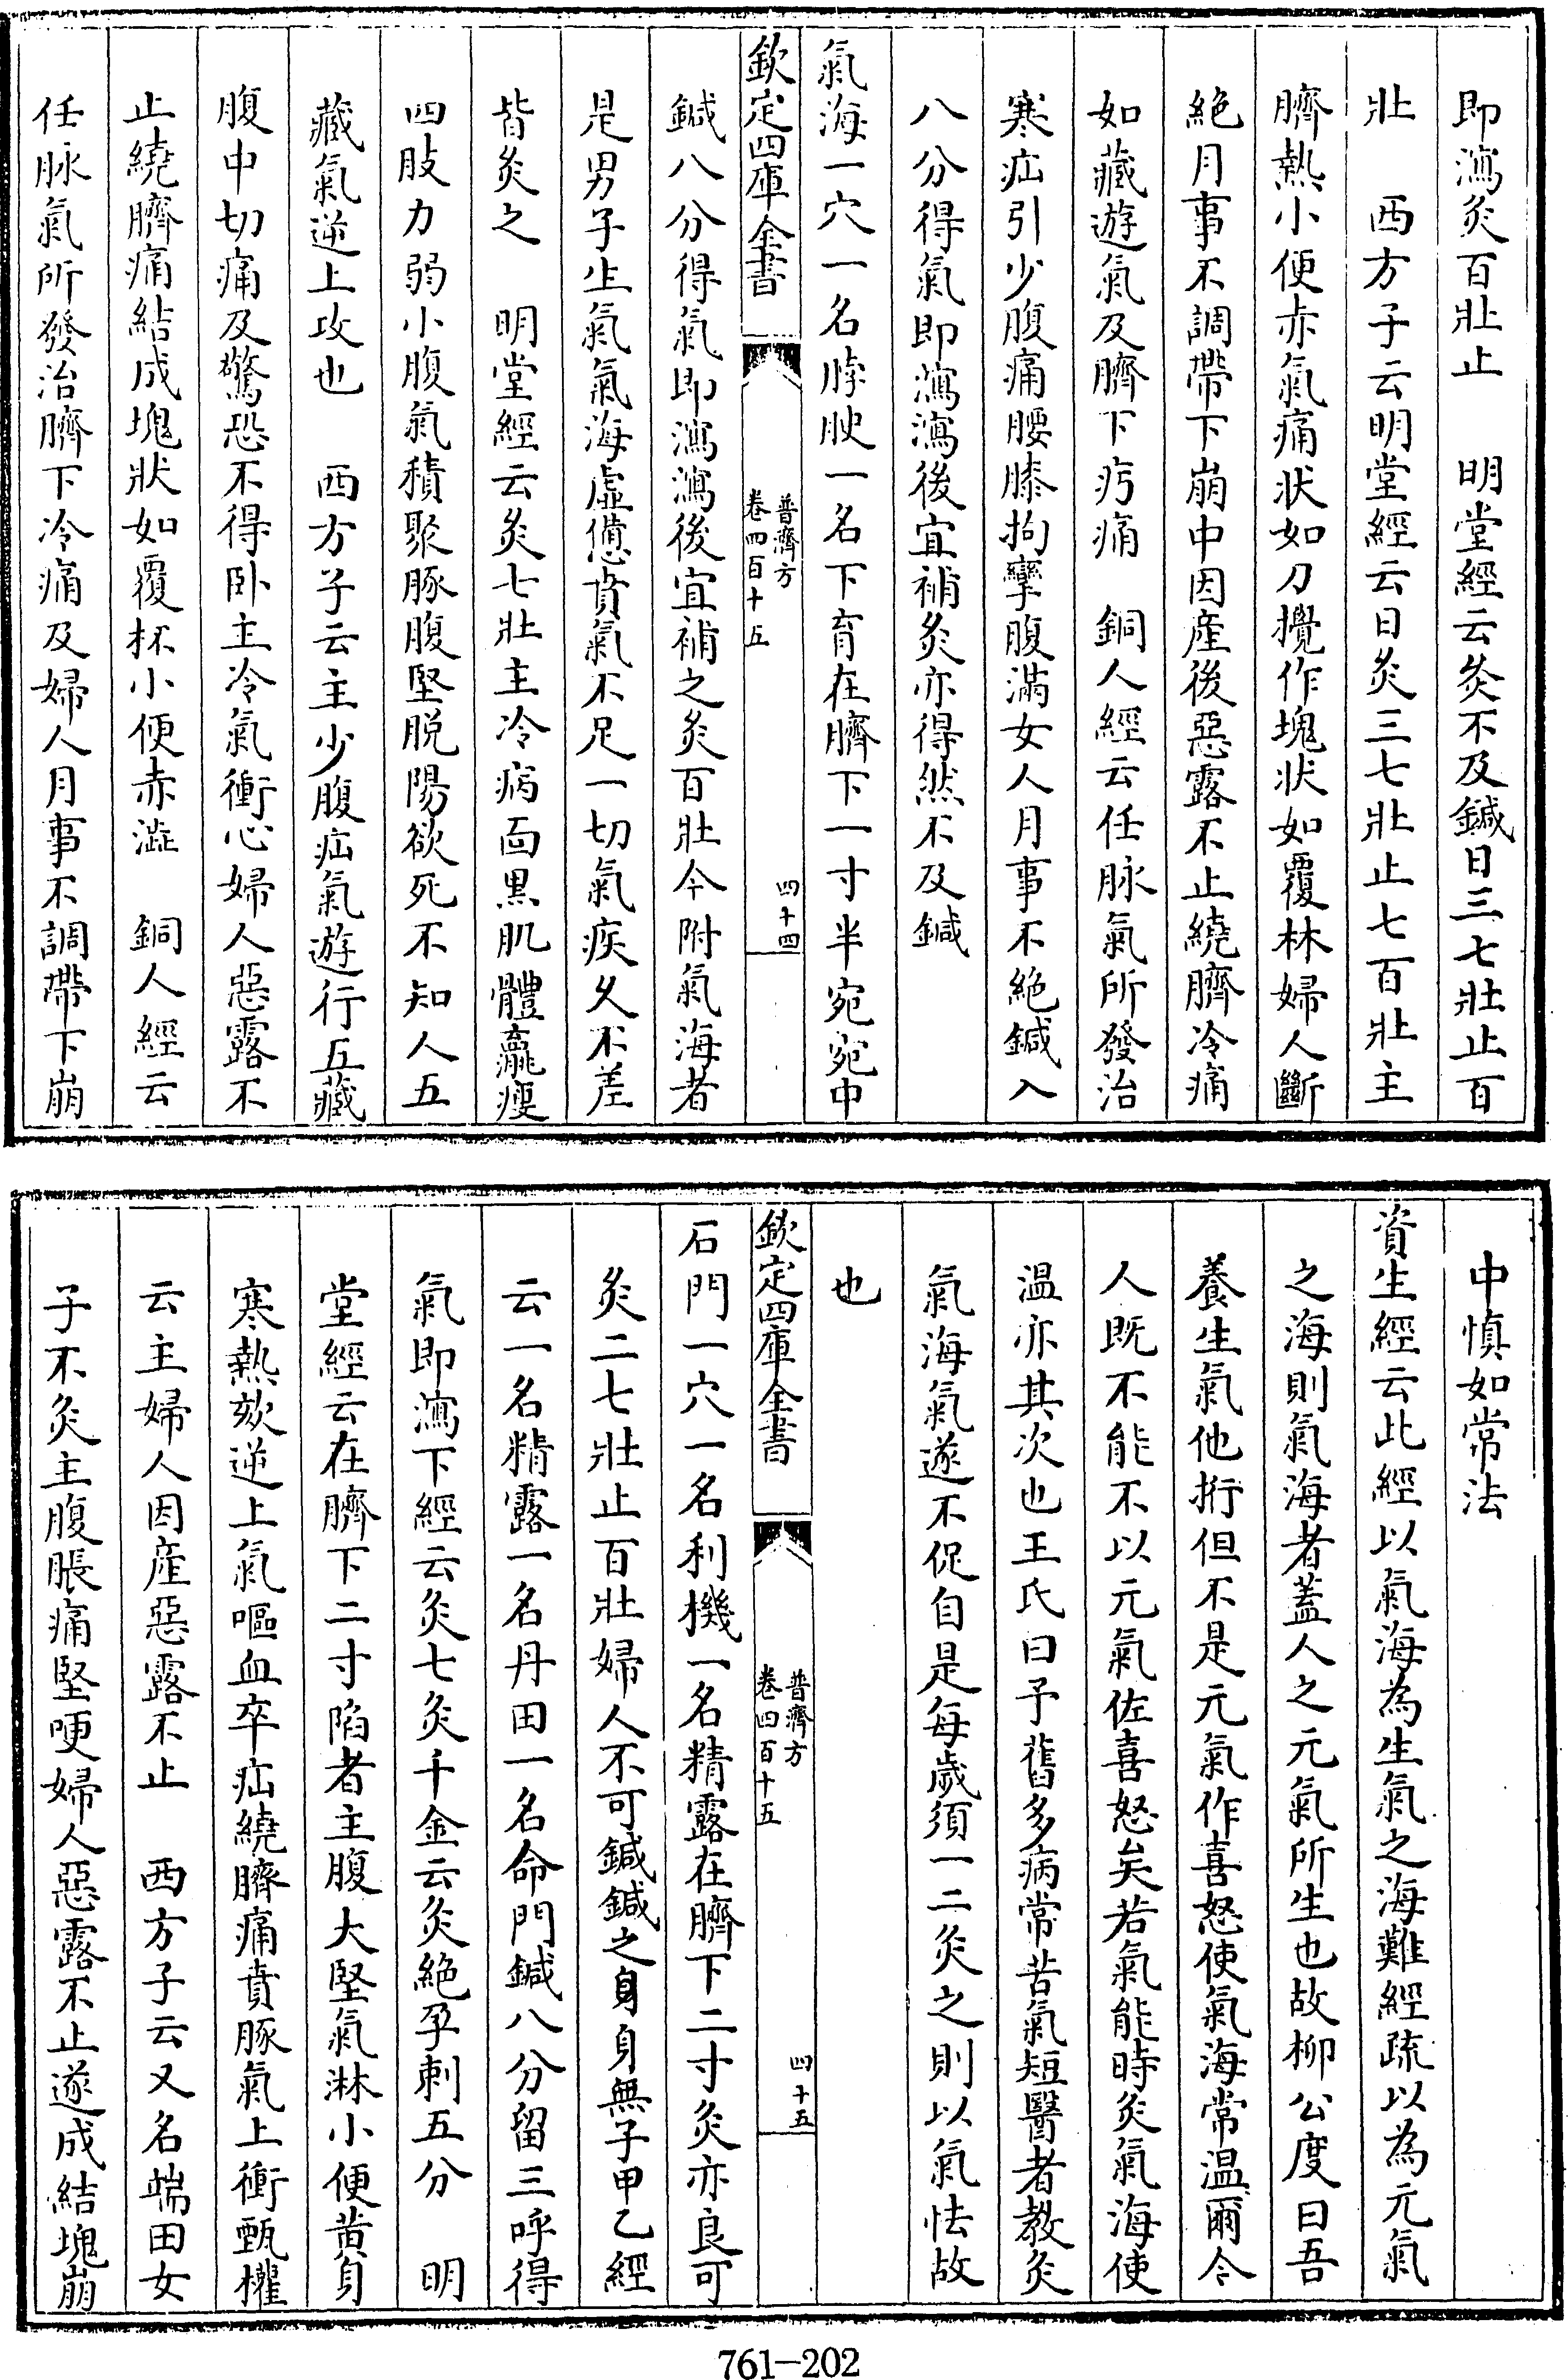 即瀉灸百壯止　明堂經云灸不及鍼日三七壯止百
壯　西方子云明堂經云日灸三七壯止七百壯主
臍熱小便赤氣痛狀如刀攪作塊狀如覆杯婦人斷
絶月事不調帶下崩中因産後惡露不止繞臍冷痛
如藏遊氣及臍下㽱痛　銅人經云任脉氣所發治
寒疝引少腹痛腰膝拘攣腹滿女人月事不絶鍼入
八分得氣即瀉瀉後宜補灸亦得然不及鍼
氣海一穴一名脖胦一名下肓在臍下一寸半宛宛中
欽定四庫全書
普濟方
卷四百十五
四十四
鍼八分得氣即瀉瀉後宜補之灸百壯今附氣海者
是男子生氣氣海虛憊真氣不足一切氣疾久不差
皆灸之　明堂經云灸七壯主冷病面黑肌體羸瘦
四肢力弱小腹氣積聚豚腹堅脱陽欲死不知人五
藏氣逆上攻也　西方子云主少腹疝氣遊行五藏
腹中切痛及驚恐不得卧主冷氣衝心婦人惡露不
止繞臍痛結成塊狀如覆杯小便赤澁　銅人經云
任脉氣所發治臍下冷痛及婦人月事不調帶下崩
中慎如常法
資生經云此經以氣海為生氣之海難經疏以為元氣
之海則氣海者蓋人之元氣所生也故柳公度曰吾
養生氣他術但不是元氣作喜怒使氣海常温爾今
人既不能不以元氣佐喜怒矣若氣能時灸氣海使
温亦其次也王氏曰予舊多病常苦氣短醫者教灸
氣海氣遂不促自是每歲須一二灸之則以氣怯故
也
欽定四庫全書
普濟方
卷四百十五
四十五
石門一穴一名利機一名精露在臍下二寸灸亦良可
灸二七壯止百壯婦人不可鍼鍼之身身無子甲乙經
云一名精露一名丹田一名命門鍼八分留三呼得
氣即瀉下經云灸七灸千金云灸絶孕刺五分　明
堂經云在臍下二寸陷者主腹大堅氣淋小便黄身
寒熱欬逆上氣嘔血卒疝繞臍痛賁豚氣上衝甄權
云主婦人因産惡露不止　西方子云又名端田女
子不灸主腹脹痛堅哽婦人惡露不止遂成結塊崩
761-202